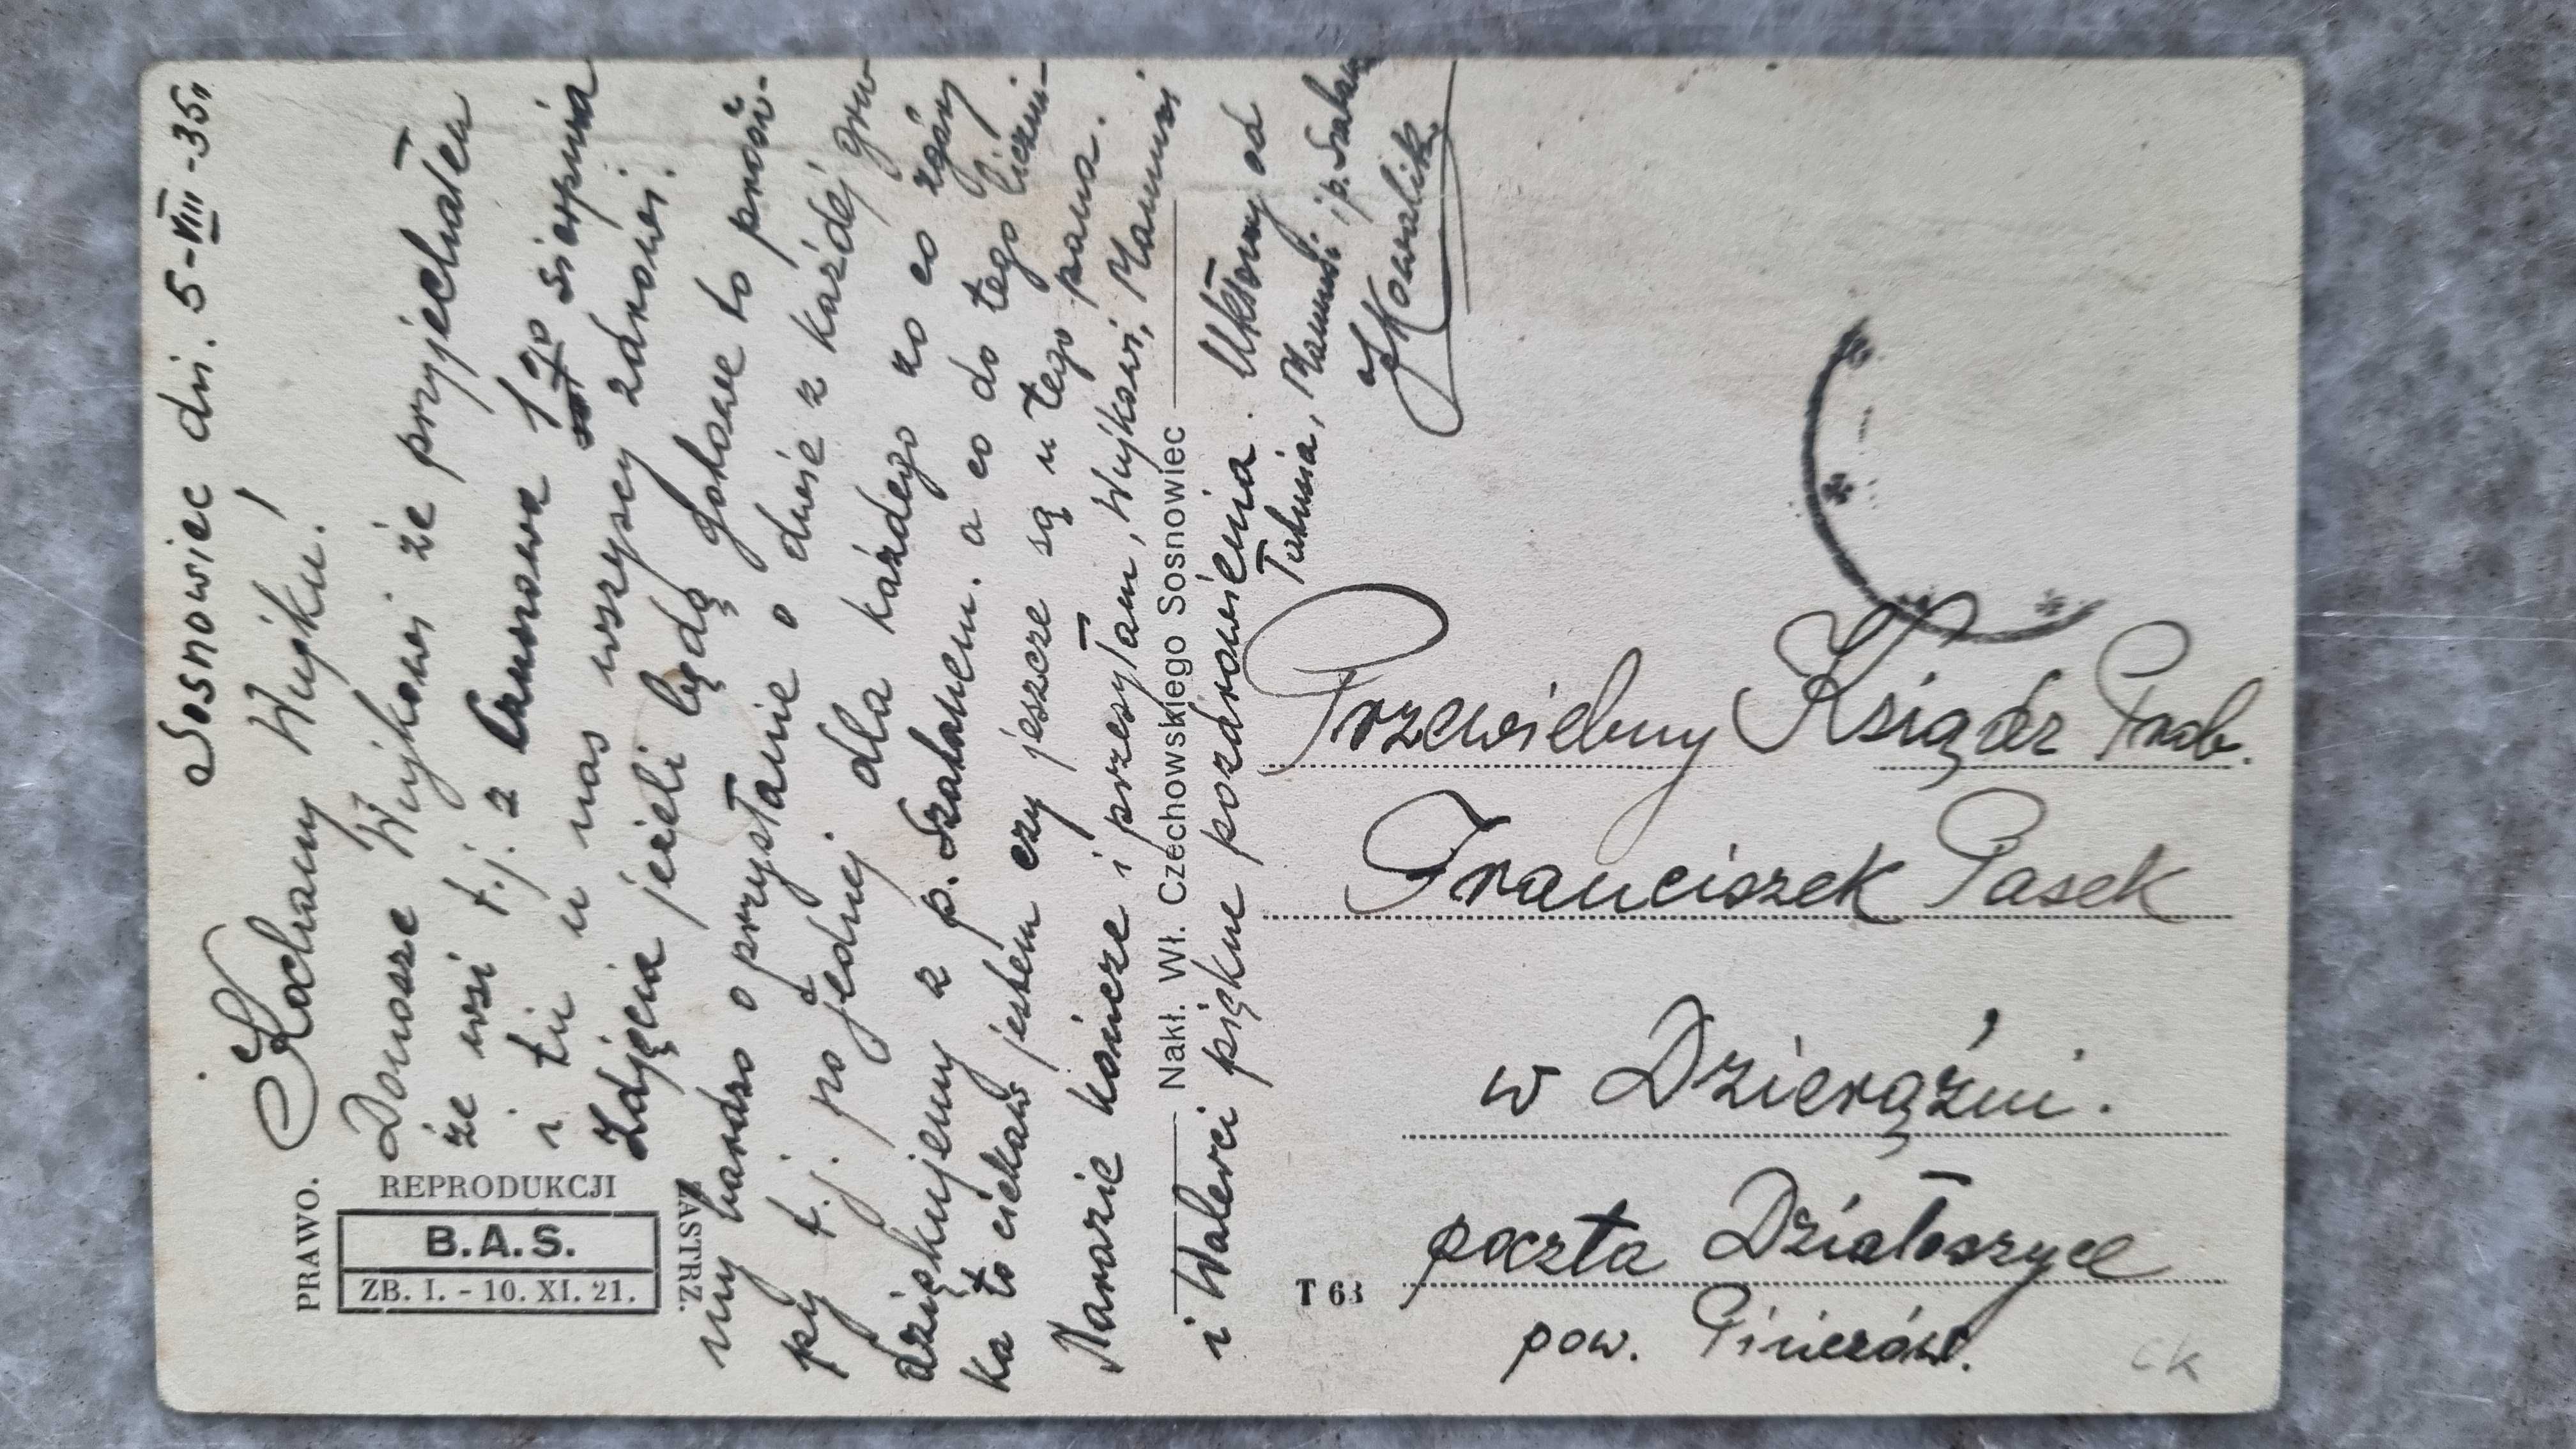 Sosnowiec dn. 5-VIII-35r.
Kochany Wujku!
Donosze Wujkowi że przyjechałem
ze wsi t.j. z Czarnowa 1go sierpnia
i tu u nas wszyscy zdrowi.
Zdjęcia jeżeli będą gotowe to prosi-
my bardzo o przysłanie o dwie z każdej gru-
py t.j. po jednej dla każdego za co zgóry
dziękujemy z p. Szalanem. a co do tego liczni-
ka to ciekaw jestem czy jeszcze są u tego pana.
Narazie kończe i przesyłam, Wujkowi, Mamusi
i Walerci piękne pozdrowienia. Ukłony od
Tatusia, Mamusi i p.
J Kowalik
PRAWO.
REPRODUKCJI
B.A.S.
ZB. I. - 10. XI. 21.
ZASTRZ.
Nakł. Wł. Czechowskiego Sosnowiec
T 63
Przewielebny Ksiądz Prob.
Franciszek Pasek
w Dzierążni.
poczta Działoszyce
pow. Pińczów.
CK